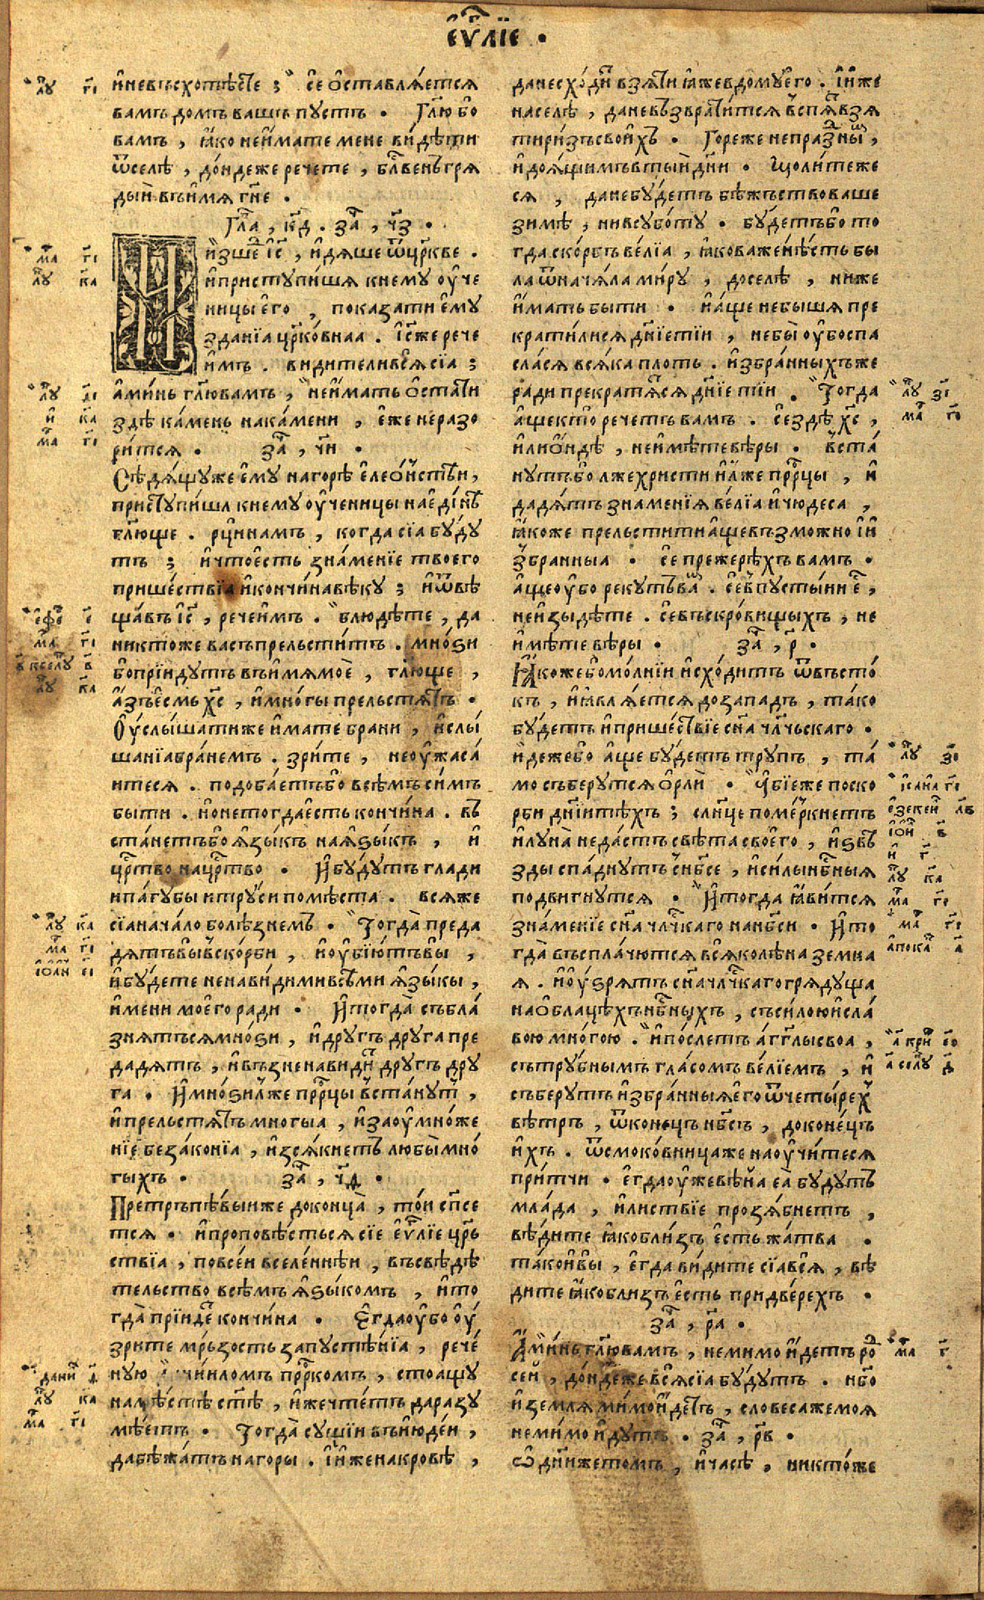 еѵⷢ҇лїе ·
и҆невъсхотѣсте ; се ѡ҆ставлѧ́етсѧ
вамъ домъ вашъ пустъ · Гл҃ю бо
вамъ , ꙗ҆́ко неи҆́мате мене ви́дѣти
ѿселѣ , до́ндеже речете , бл҃венъ грѧ
ды́и въи҆́мѧ гн҃е ·
Гла , к҃д · за , ч҃з ·
и҆зше і҆с҃ , и҆дѧше ѿцр҃кве ·
и҆приступи́шѧ кнему ѹ҆че
ницы е҆го , показати е҆му
зданїа цр҃ко́внаа · І҆с҃же рече
и҆мъ · видителивсѧ сїа ;
а҆ми́нь гл҃ювамъ , неи҆́мать ѻ҆ста́ти
здѣ ка́мень нака́мени , е҆́же неразо
ри́тсѧ · за , ч҃и ·
Сѣдѧ́щуже е҆му нагорѣ̀ е҆лео́нстѣи ,
приступи́шѧ кнему ѹ҆ченицы наеди́нѣ
гл҃юще · рци́намъ , когда сїа бу́ду
тъ ; и҆что́есть зна́менїе твоего
прише́ствїа и҆кончи́навѣку ; и҆ѿвѣ
ща́въ і҆с҃ , рече́имъ · блюдѣ́те , да
никтоже васъпрельсти́тъ · мно́ѕи
бопрїи́дутъ въи҆́мѧмое , гл҃юще ,
а҆́зъ е҆смь х҃с , и҆мно́гы прельстѧ́тъ ·
Ѹ҆слы́шатиже и҆́мате брани , и҆слы́
шанїабра́немъ · зри́те , неѹ҆жаса́
итесѧ · подоба́етъбо всѣ́мъ си́мъ
быти · нонетогдае́сть кончи́на · въ
ста́нетъбо ѧ҆зы́къ наѧ҆зы́къ , и҆
црⷭ҇тво нацрⷭ҇тво · И҆бу́дутъ глади
ипа́губы и҆тру́си помѣ́ста · всѧже
сїанача́ло болѣ́знемъ · Тогда̀ преда
дѧ́тъвы́ вско́рби , и҆ѹ҆бїю́тъвы ,
и҆бу́дете ненави́димивсѣ́ми ѧ҆зы́кы ,
и҆́мени моего ради · И҆тогда̀ съблa
знѧ́тъсѧмно́ѕи , и҆дру́гъ дру́га пре
дадѧ́тъ , и҆възненави́дѧ дру́гъ дру
га · И҆мно́ѕи лже прⷪ҇рцы въста́нутъ ,
и҆прельстѧ́тъ мно́гыа , и҆заѹ҆мно́же
нїе беззако́нїа , и҆зсѧ́кнетъ любы́мно́
гыхъ · за , ч҃ѳ ·
Претръпѣ́выиже доконца̀ , то́и сп҃се
тсѧ · и҆проповѣ́стьсѧ сїе е҆ѵⷢ҇лїе црⷭ҇ь
ствїа , повсе́и вселе́ннѣи , въсвѣдѣ́
тельство всѣ́мъ ѧ҆зы́комъ , и҆то
гда̀ прїи́де кончи́на · Е҆гдаѹ҆бо ѹ҆́
зрите мръзость запустѣ́нїа , рече́
ную чи́нломъ прⷪ҇ркомъ , стоащу
намѣ́стѣ ст҃ѣ , и҆́жечте́тъ даразу
мѣ́етъ · Тогда̀ су́щїи въи҆юде́и ,
дабѣжа́тъ нагоры · и҆́женакровѣ ,
данесхо́ди взѧ́ти ꙗ҆́жевдомуе҆го · И҆́же
населѣ̀ , даневъзврати́тсѧ вспѧ́ть взѧ
тири́зъсвои́хъ · Горе́же непра́знымъ ,
и҆доѧ́щимъ вты́ѧ дн҃и · Щоли́теже
сѧ , данебу́детъ бѣжъствоваше
зимѣ̀ , нивсубо́ту · бу́детъбо то
гда ско́рбь ве́лїа , ꙗ҆коваженѣ́сть бы
ла ѿнача́ла ми́ру , доселѣ , ниже
и҆́мать быти · и҆а́ще небы́шѧ пре
крати́лисѧ дн҃їети́и , небы̀ ѹ҆боспа
сла́сѧ всѧ́ка плоть · и҆збра́нныхъже
ради прекратѧ́тсѧ дн҃їе ти́и · Тогда
а҆щекто̀ рече́тъ вамъ · се́здѣ х҃с ,
и҆лио́ндѣ , неи҆мѣ́те вѣры · въста́
нутъбо лжехристи и҆ лже прⷪ҇рцы , и҆
дадѧ́тъ знаменїѧ ве́лїа и҆чюдеса ,
ꙗ҆коже прельсти́ти а҆щевъзмо́жно и҆
збра́нныа · се прежерѣ́хъ вамъ ·
а҆щеѹ҆бо реку́тъва́мъ · се́ впусты́ни е ,
неи҆зыдѣ́те · се́въскро́вищихъ , не
и҆мѣ́те вѣ́ры · за , р҃ ·
Ꙗ҆́кожебомо́лнїи и҆схо́дитъ ѿвъсто́
къ , и҆ꙗ҆влѧ́етсѧ дозападъ , та́ко
бу́детъ и҆прише́ствїе сн҃а чл҃чьскаго ·
и҆дежебо а҆́ще бу́детъ тру́пъ , та́
мо съберутсѧ ѻ҆рли · А҆бїеже поско
рби дн҃їи тѣ́хъ ; сл҃нце поме́ркнетъ
и҆луна̀ неда́стъ свѣ́та своего , и҆ѕвѣ
зды спаднутъ сн҃бсе , и҆си́лын҃бныѧ
подви́гнутсѧ · И҆тогда ꙗ҆ви́тсѧ
зна́менїе сн҃а чл҃чкаго нан҃бси · И҆то
гда̀ въспла́чютсѧ всѧколѣ́на земна
ѧ · и҆ѹ҆зрѧ́тъ сн҃ачл҃чкаго грѧду́ща
наѻ҆блацѣ́хъ н҃бныхъ , съси́лоюи҆сла́
вою мно́гою · и҆по́слетъ а҆́гг҃лы своа ,
сътру́бнымъ гла́сомъ ве́лїемъ , и҆
съберу́тъ и҆збра́нныѧе҆го ѿчетырехъ
вѣ́тръ , ѿконе́цъ н҃бсъ , доконе́цъ
и҆́хъ · ѿсмоко́вницаже наѹ҆чи́тесѧ
при́тчи · е҆гдаѹ҆́жевѣ́и е҆ѧ̀ бу́дутъ
мла́да , и҆ли́ствїе прозѧ́бнетъ ,
вѣ́дите ꙗ҆коблизъ є҆сть жа́тва ·
та́кои҆вы , е҆гда ви́дите сїавсѧ , вѣ
дите ꙗ҆коблизъ є҆сть придве́рехъ ·
за , р҃а ·
А҆ми́нь гл҃ювамъ , неми́мои҆́детъ ро
се́и , до́ндеже всѧ́сїа бу́дутъ · н҃бо
и҆землѧ ми́мои҆́детъ , словесажемоѧ
неми́мои҆́дутъ · за , р҃в ·
ѡ҆ дн҃ижето́мъ , и҆часѣ̀ , никто́же